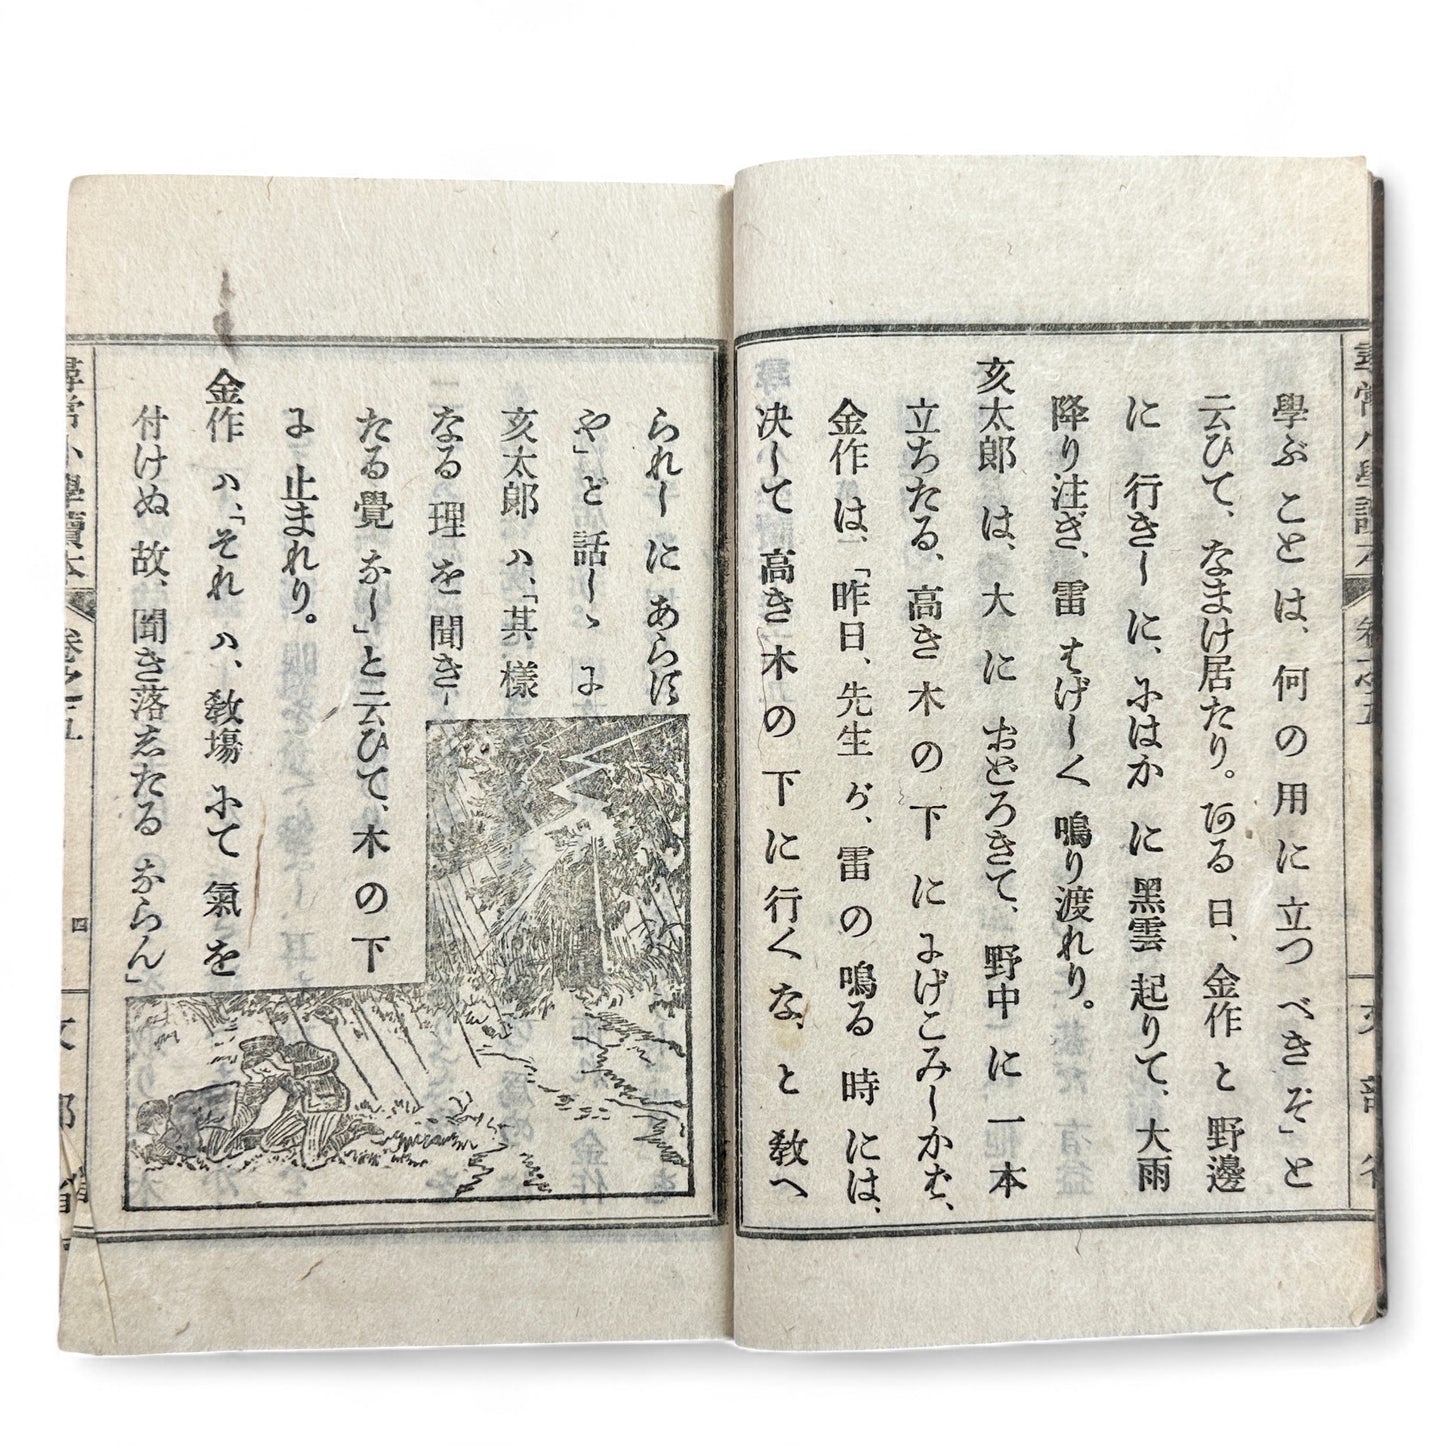 學ぶ ことは、何の用に立つ べきぞ」と
云ひて、なまけ居たり。ある日、金作 と 野邊
に 行きしに、にはか に 黑雲 起りて、大雨
降り注ぎ、雷 はげしく 鳴り渡れり。
亥太郎 は、大 に おどろきて、野中 に 一本
立ちたる、高き 木 の 下 に にげこみしかば、
金作 は、「昨日、先生 が、雷 の 鳴る 時 には、
决して 高き 木 の 下 に 行く な、と 敎へ
られしに あらず
や」と 話しゝ に
亥太郎 ハ、「其 樣
なる 理 を 聞き
たる 覺 なし」と 云ひて、木 の 下
に 止まれり。
金作 ハ、「それ ハ、敎塲 にて 氣 を
付けぬ 故、聞き 落したる ならん」
尋常小學讀本
卷之五
四
文部省